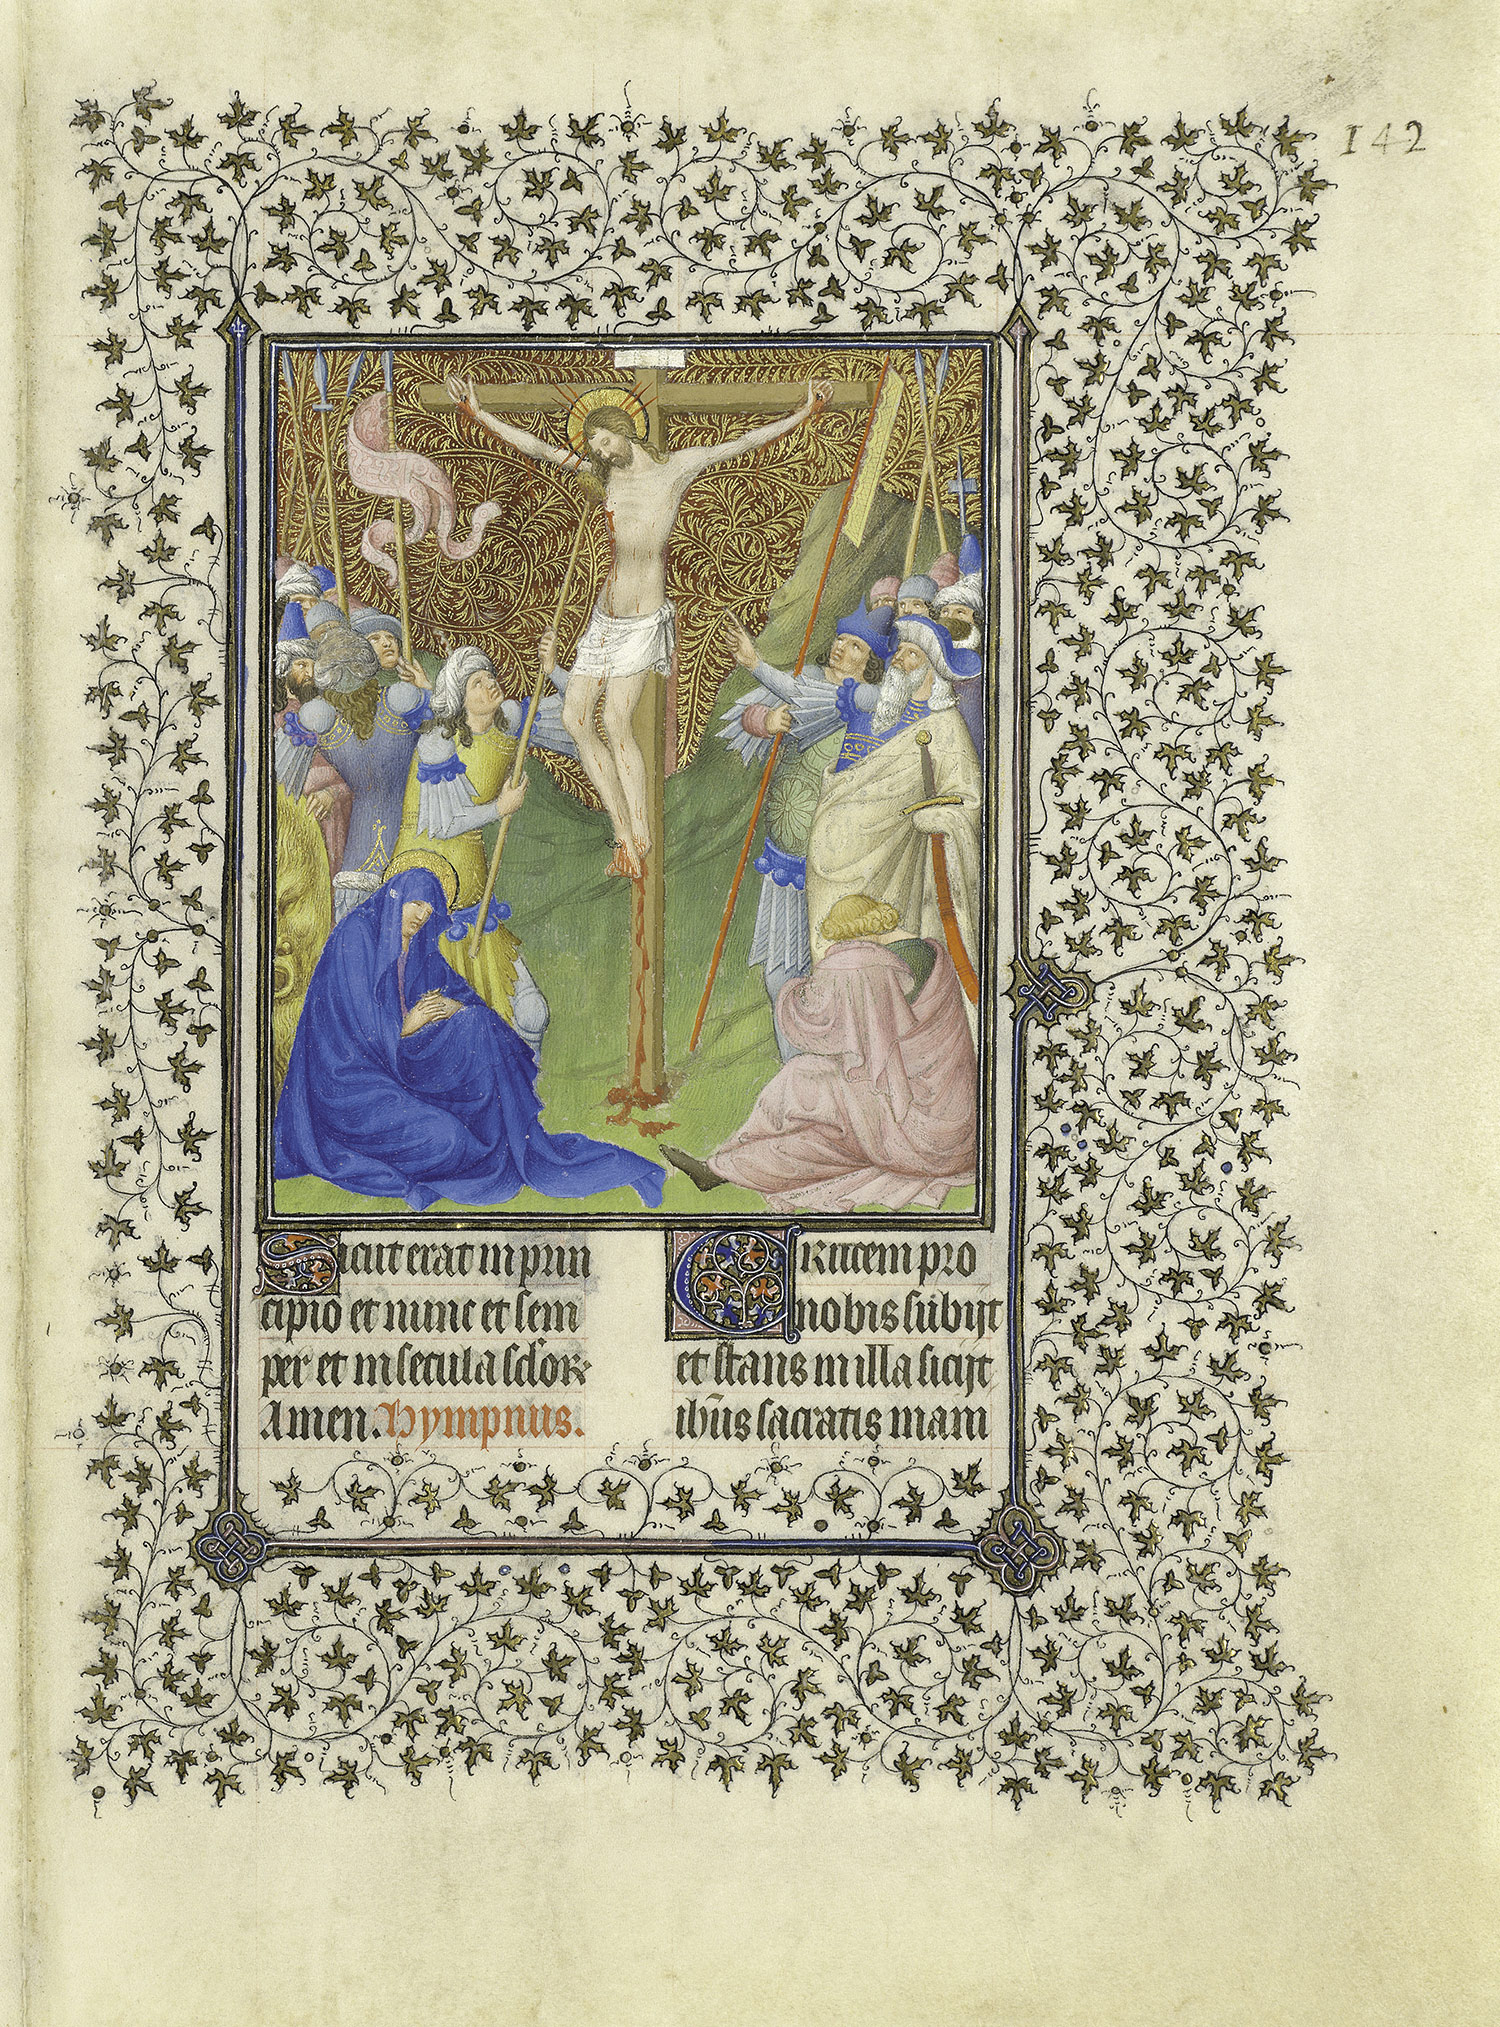 142
Sicut erat in prin
cipio et nunc et sem
per et in secula sc̄loꝝ
Amen. Hympnus.
CRucem pro
nobis subijt
et stans in illa sicijt
ih̄us sacratis mani